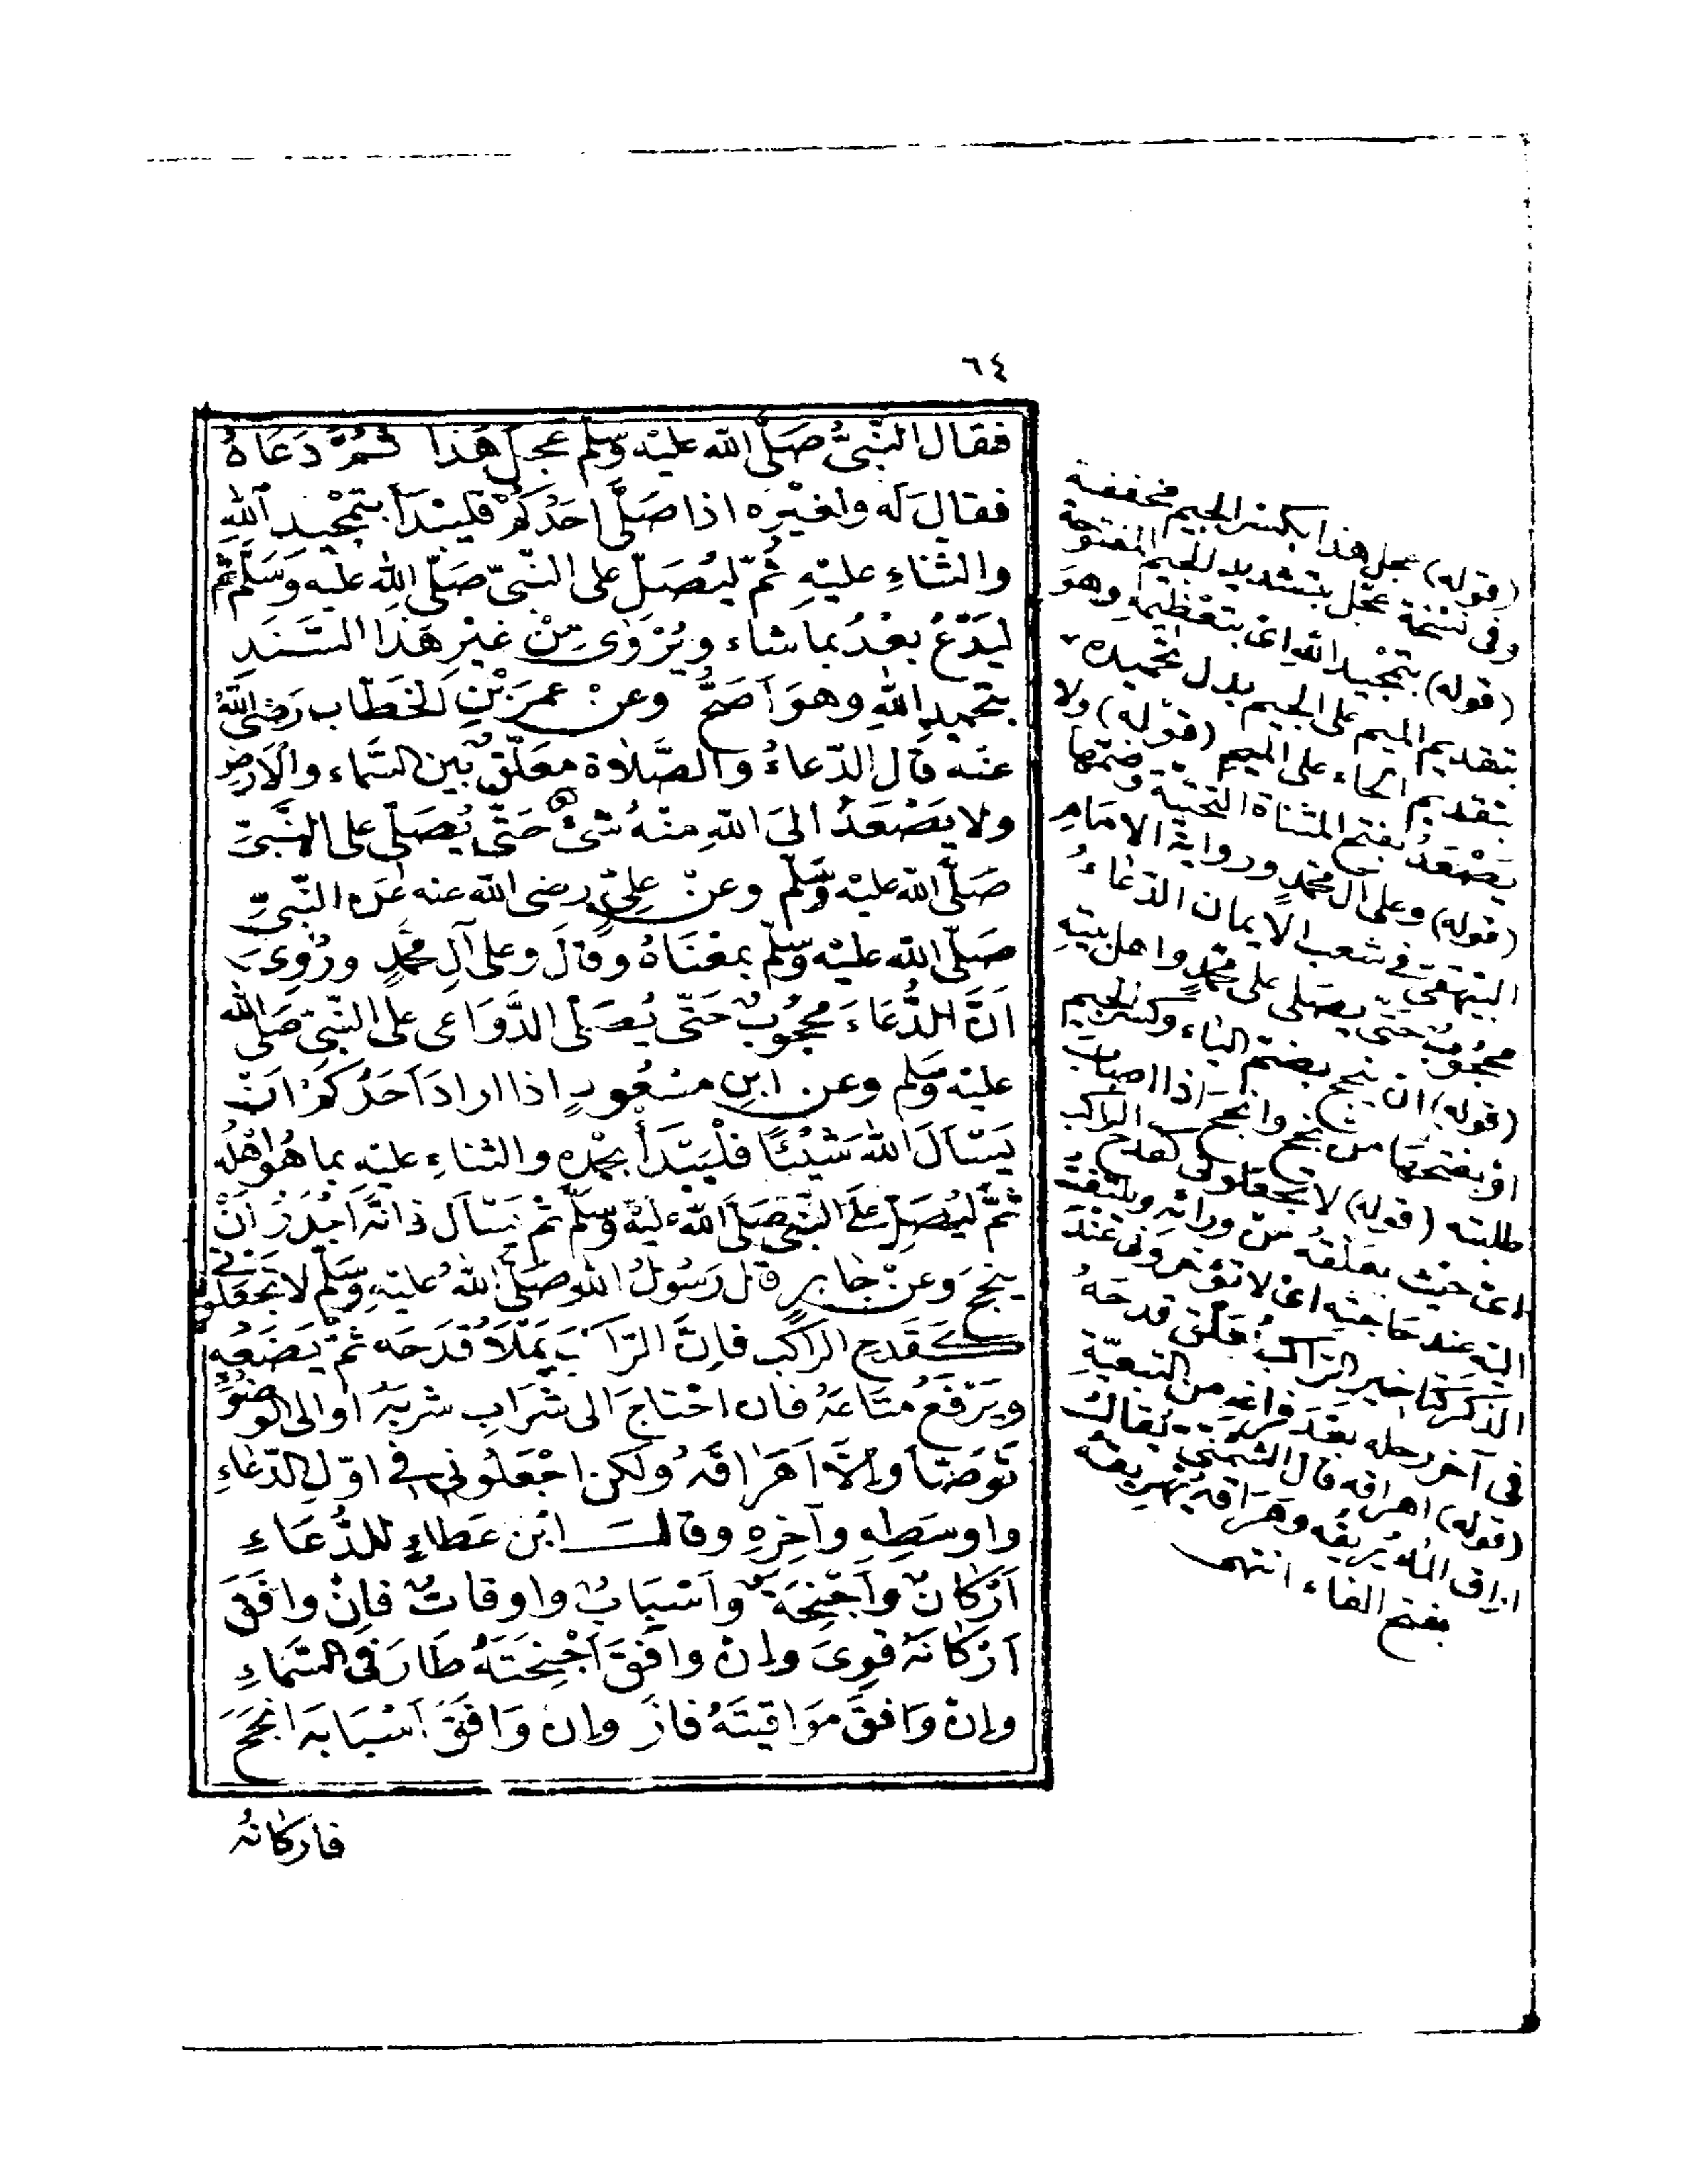 ٦٤
فقال النَّبِىُّ صَلَّى الله عليْه وسلّم عجِلَ هَذا ثُمَّ دَعَاهُ
فقالَ لَه ولغيْرِه اذا صَلَّى احَدُكُمْ فليبْدَأْ بتَمْجِيدِ اللهِ
والثناءِ عليْهِ ثُمّ ليُصَلِّ على النَّبىّ صَلّى اللهُ عليه وَسَلَّم ثم
ليَدْعُ بعْدُ بما شاء ويُرْوٰى مِنْ غيْرِ هَذا السَّنَدِ
بتحميدِ اللهِ وهوَ أصَحُّ وعنْ عمرَ بْنِ الخَطّاب رَضِىَ اللهُ
عنه قال الدّعاءُ والصَّلاة معَلّقٌ بين السّماء والاَرض
ولا يَصْعَدُ الىَ اللهِ منْهُ شئٌ حَتّى يُصَلّى على النَّبىّ
صَلَّى الله عليْه وَسَلّم وعنْ علىٍّ رضى الله عنه عَنِ النّبىِّ
صَلّى الله عليْه وسلّم بمعْنَاهُ وقالَ وعلى آلِ محمّدٍ ورُوِىَ
اَنَّ الدُّعَاءَ محجُوبٌ حَتّى يُصَلّى الدَّاعى على النّبىّ صَلّى الله
عليْه وَسَلم وعن ابنِ مسْعُودٍ اذا ارادَ اَحَدُكُمْ اَنْ
يَسْاَلَ اللهَ شَيْئًا فلْيَبْدَأْ بحمْدِهِ والثناءِ عليْهِ بما هُوَ اهْلُه
ثمَّ ليُصَلِّ علَى النَّبىّ صَلّى الله عليْه وَسَلّم ثم يَسْاَل فانَّه اَجْدَرُ اَنْ
ينجحَ وَعنْ جابرٍ قال رَسُولُ الله صَلّى اللهُ عليْهِ وَسَلّم لا تَجْعَلُونى
كَقَدَحِ الراكبِ فاِنَّ الرّاكبَ يَمْلَأُ قَدَحَه ثمّ يَضَعُه
ويَرْفعُ مَتَاعَهُ فان احْتاجَ الى شَرَابٍ شربَهُ او الى الوضُوءِ
تَوضّأ وَاِلَّا اَهَرَاقَهُ ولكن اجْعَلُونى فى اوّلِ الدّعَاءِ
واوسَطِهِ وآخِرِهِ وقالَ ابن عَطاءٍ للدُّعَاءِ
اَرْكانٌ واَجْنِحَةٌ واَسْبَابٌ واوقاتٌ فاِنْ وافَقَ
اَرْكانَهُ قوِىَ وإنْ وافَقَ اَجْنِحَتَهُ طَارَ فى السّماءِ
وإنْ وَافقَ مَوَاقيتَهُ فازَ وإن وَافَقَ اَسْبَابَهُ انْجحَ
فاركانُه
(قوله) عجل هذا بكسر الجيم مخففة
وفى نسْخة عجّل بتشديد الجيم المفتوحة
(قوله) بتمْجيد الله اىْ بتعْظيمه وهو
بتقديم الميم على الجيم بدل تحميده
بتقديم الحاء على الميم (قوله) ولا
يَصْعَدُ بفتح المثناة التحتيّة وضمّها
(قوله) وعلى آل محمّد ورواية الامَامِ
البَيْهقىّ فى شعب الايمان الدّعاءُ
محجُوبٌ حتّى يصَلى على محمّدٍ واهل بيتهِ
(قوله) ان ينجح بضمّ الياء وكسر الجيم
او بفتحهَا من نجح وانجحَ اذا اصاب
طلبته (قوله) لا تجعلونى كقدح الراكب
اىْ حيْث يعلقهُ منْ ورائه ويلتفتُ
اليْه عند حَاجته اىْ لا تؤخرونى عنْدَ
الذكر كتاخير الراكب تعليق قدحَهُ
فى آخر رحله بعْدَ فراغه من التبعيّةِ
(قوله) اهراقه قال الشمُنّى يقال
اراق الماء يُريقه وهَرَاقهُ يُهريقه
بفتح الهاء انتهى